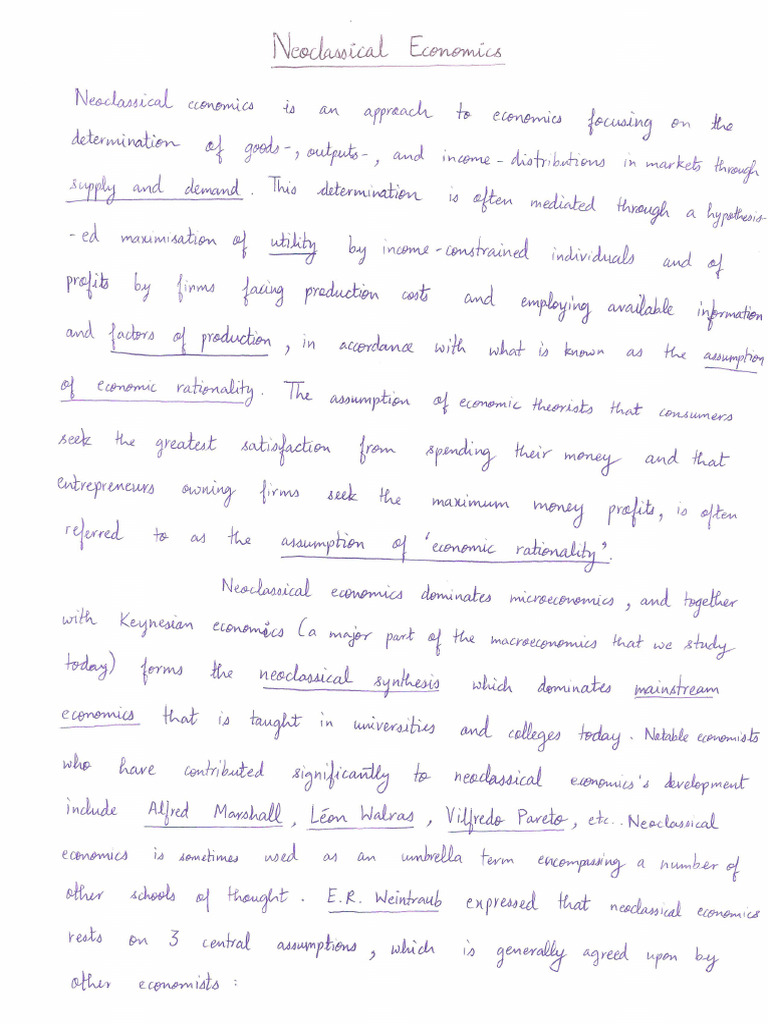 Neoclassical Economics
Neoclassical economics is an approach to economics focusing on the
determination of goods-, outputs-, and income-distributions in markets through
supply and demand. This determination is often mediated through a hypothesis-
-ed maximisation of utility by income-constrained individuals and of
profits by firms facing production costs and employing available information
and factors of production, in accordance with what is known as the assumption
of economic rationality. The assumption of economic theorists that consumers
seek the greatest satisfaction from spending their money and that
entrepreneurs owning firms seek the maximum money profits, is often
referred to as the assumption of 'economic rationality'.
Neoclassical economics dominates microeconomics, and together
with Keynesian economics (a major part of the macroeconomics that we study
today) forms the neoclassical synthesis which dominates mainstream
economics that is taught in universities and colleges today. Notable economists
who have contributed significantly to neoclassical economics's development
include Alfred Marshall, Léon Walras, Vilfredo Pareto, etc.. Neoclassical
economics is sometimes used as an umbrella term encompassing a number of
other schools of thought. E.R. Weintraub expressed that neoclassical economics
rests on 3 central assumptions, which is generally agreed upon by
other economists: